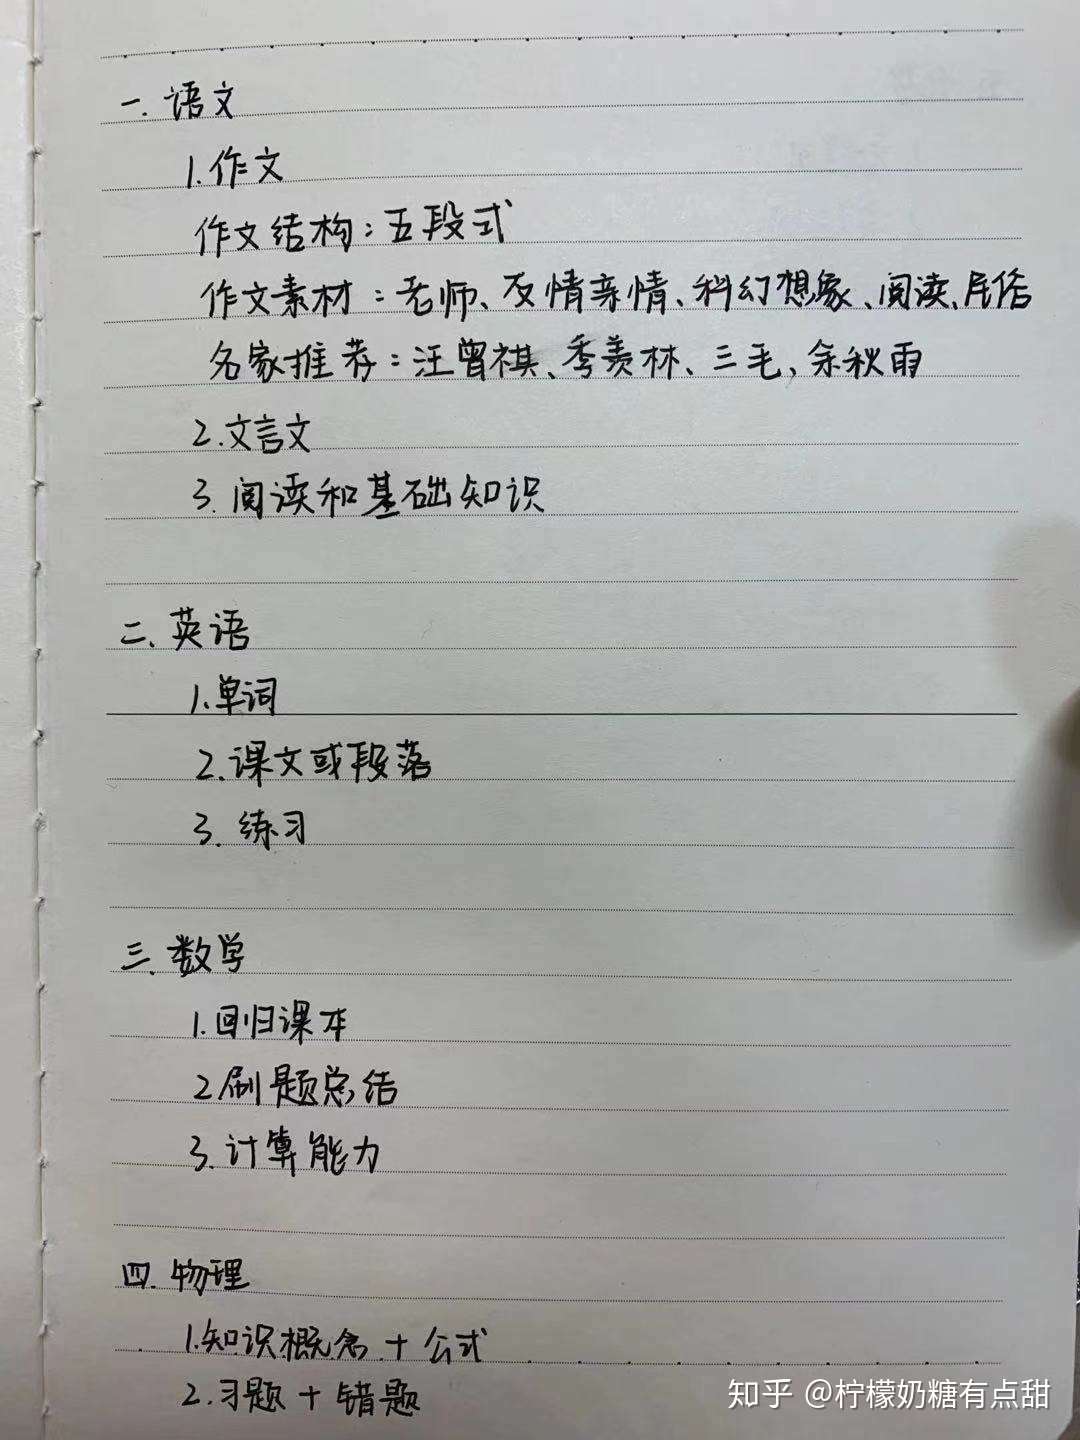 一.语文
1.作文
作文结构:五段式
作文素材:老师、友情亲情、科幻想象、阅读、民俗
名家推荐:汪曾祺、季羡林、三毛、余秋雨
2.文言文
3.阅读和基础知识
二、英语
1.单词
2.课文或段落
3.练习
三.数学
1.回归课本
2刷题总结
3.计算能力
四.物理
1.知识概念+公式
2.习题+错题
知乎 @柠檬奶糖有点甜